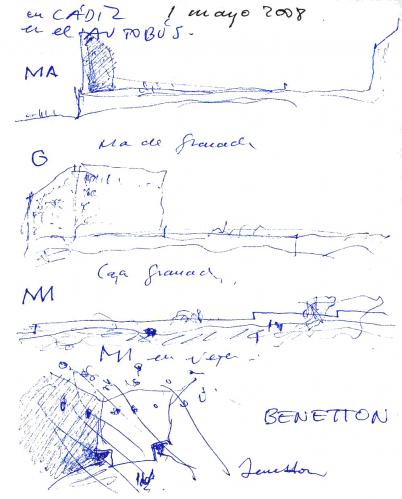 en CÁDIZ 1 mayo 2008
en el AUTOBÚS.
MA
Ma de Granada
G
Caja Granada,
MM
MM en Vejer
BENETTON
Benetton